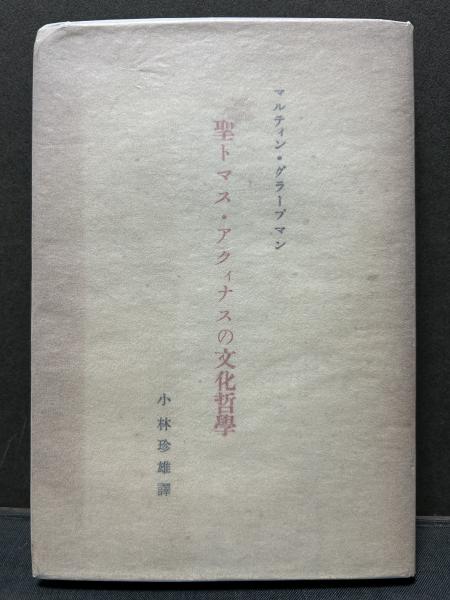 マルティン・グラープマン
聖トマス・アクィナスの文化哲學
小林珍雄譯